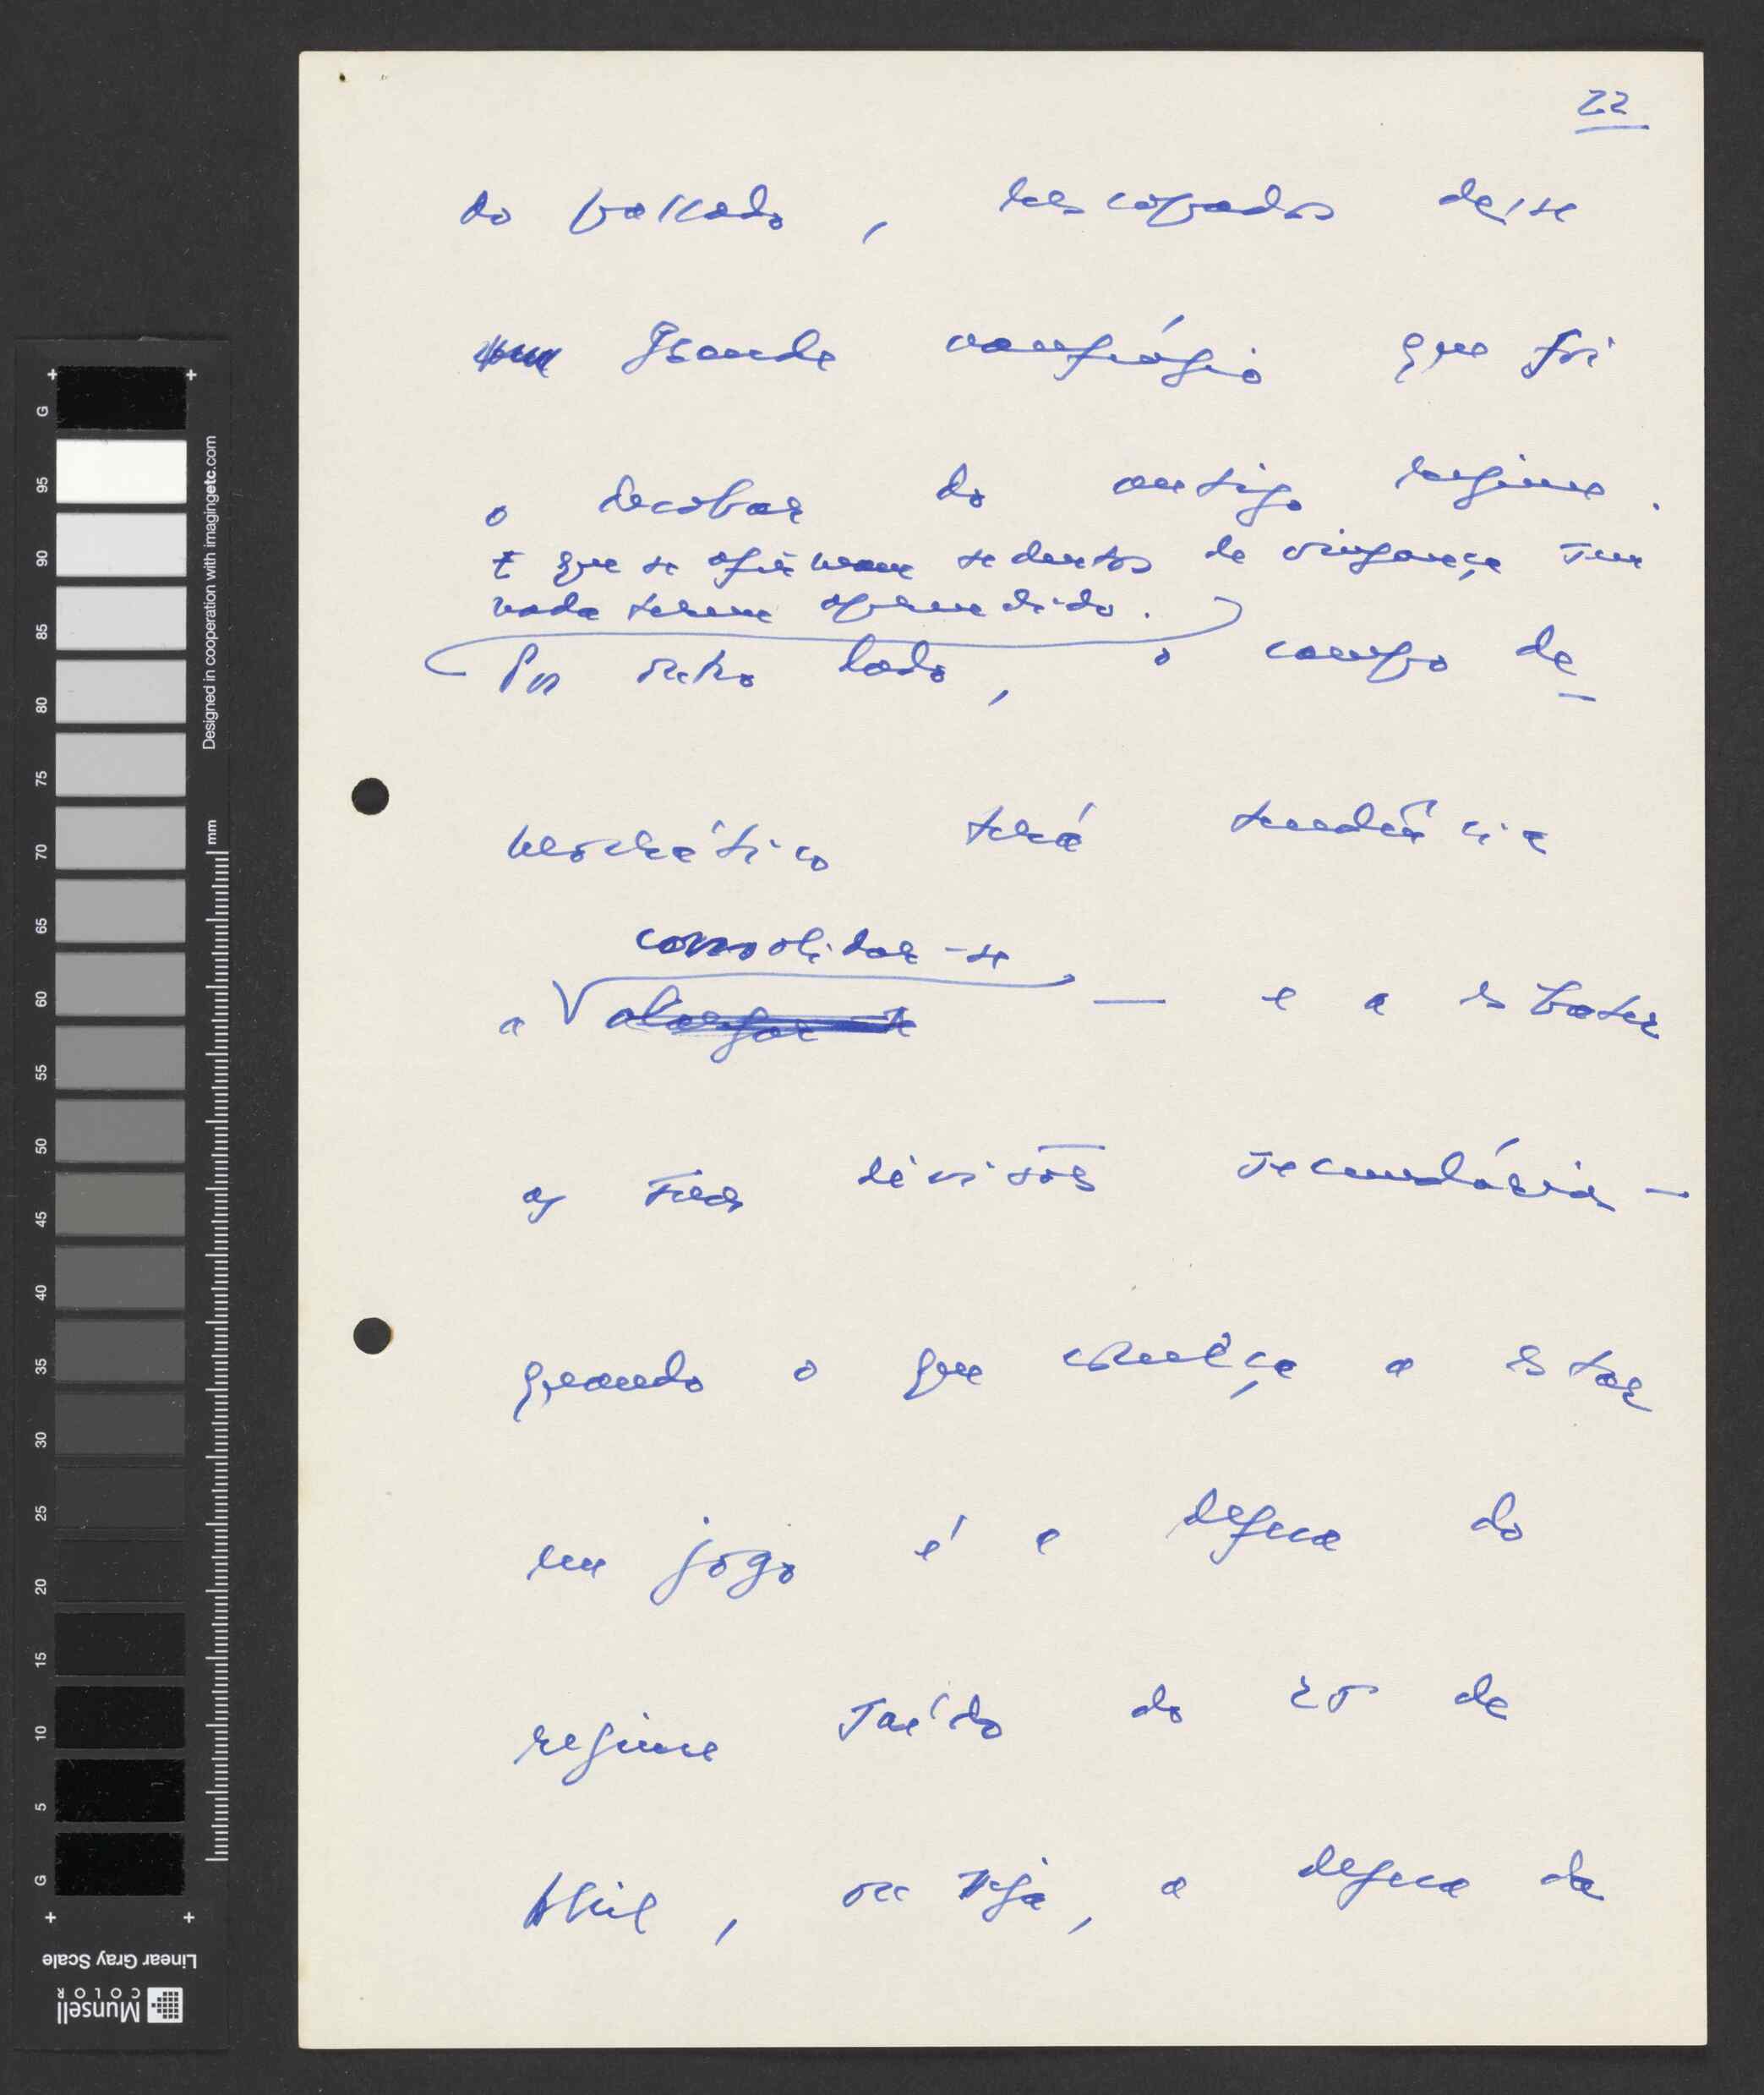 22
do passado, rescapados desse
grande naufrágio que foi
o derrobar do antigo regime.
E que se afirmam sedentos de vingança sem
nada terem aprendido.
Por outro lado, o campo de-
mocrático terá tendência
consolidar-se
a alargar-se — e a esbater
as suas divisões secundárias —
quando o que começa a estar
em jogo é a defesa do
regime saído do 25 de
Abril, ou seja, a defesa da
G 95 90 85 80 75 70 65 60 55 50 45 40 35 30 25 20 15 10 5 G
Designed in cooperation with imagingetc.com
mm
Linear Gray Scale
Munsell
COLOR